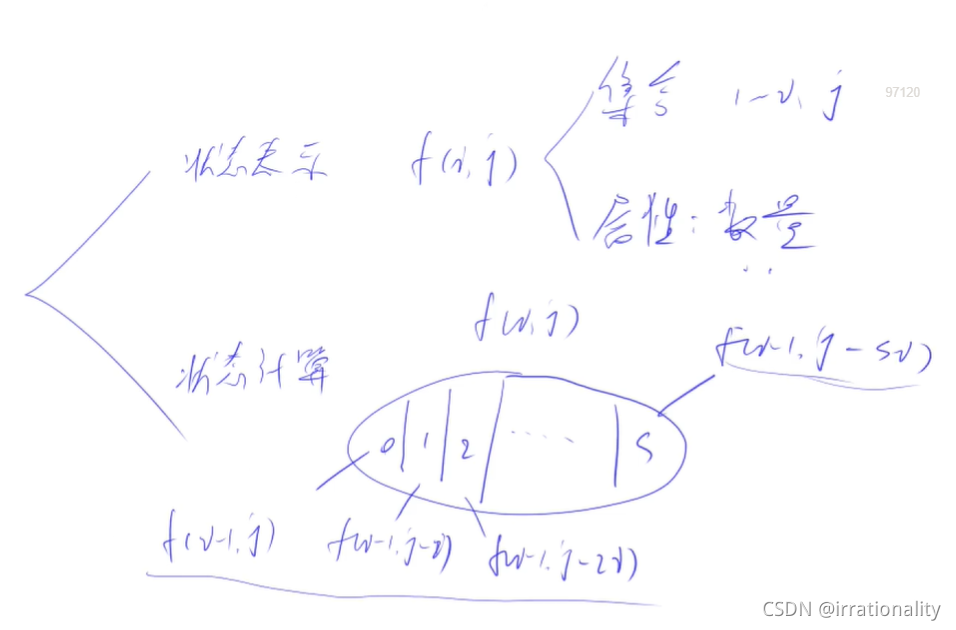 集合 1~i, j
97120
状态表示 f(i, j)
属性: 数量
f(i, j)
f(i-1, j-si)
状态计算
0 1 2 ...... s
f(i-1, j) f(i-1, j-i) f(i-1, j-2i)
CSDN @irrationality